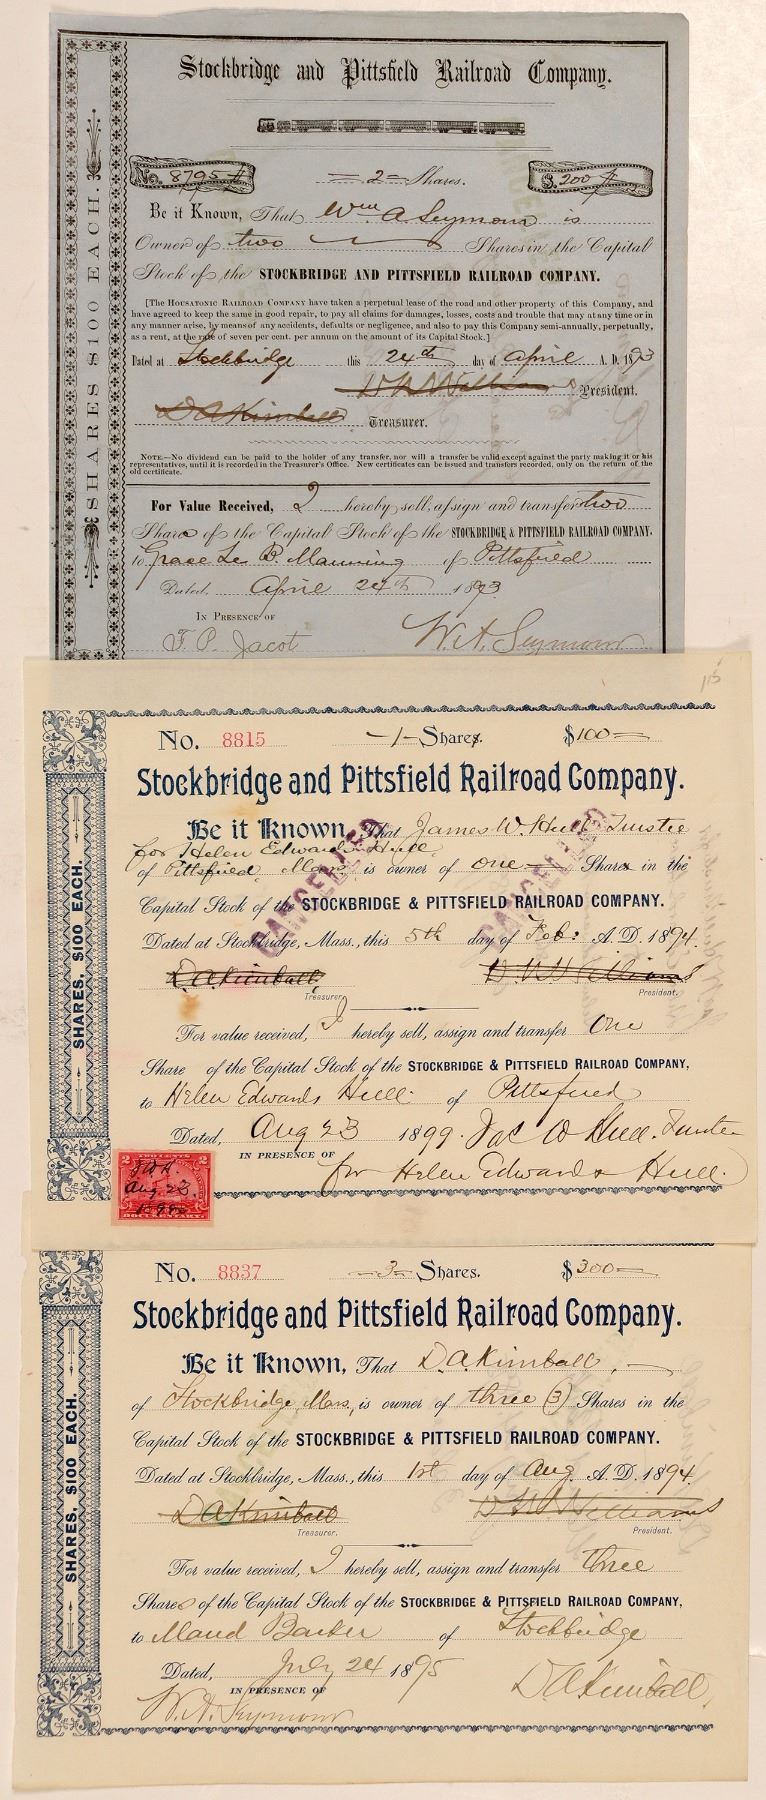 Stockbridge and Pittsfield Railroad Company.
No. 8795 2 Shares. $ 200
Be it Known, That Wm A Seymour is
Owner of two Shares in the Capital
Stock of the STOCKBRIDGE AND PITTSFIELD RAILROAD COMPANY.
[The HOUSATONIC RAILROAD COMPANY have taken a perpetual lease of the road and other property of this Company, and
have agreed to keep the same in good repair, to pay all claims for damages, losses, costs and trouble that may at any time or in
any manner arise, by means of any accidents, defaults or negligence, and also to pay this Company semi-annually, perpetually,
as a rent, at the rate of seven per cent. per annum on the amount of its Capital Stock.]
Dated at Stockbridge this 24th day of April A. D. 1893
D R Williams President.
D A Kimball Treasurer.
NOTE.—No dividend can be paid to the holder of any transfer, nor will a transfer be valid except against the party making it or his
representatives, until it is recorded in the Treasurer's Office. New certificates can be issued and transfers recorded, only on the return of the
old certificate.
For Value Received, I hereby sell, assign and transfer two
Shares of the Capital Stock of the STOCKBRIDGE & PITTSFIELD RAILROAD COMPANY.
to Grace Le B. Manning of Pittsfield
Dated, April 24th 1893
IN PRESENCE OF
F. P. Jacot W. A. Seymour
SHARES $100 EACH.
15
No. 8815 1 Share. $100
Stockbridge and Pittsfield Railroad Company.
Be it Known, That James W. Hull Trustee
for Helen Edwards Hull
of Pittsfield, Mass, is owner of one Share in the
Capital Stock of the STOCKBRIDGE & PITTSFIELD RAILROAD COMPANY.
Dated at Stockbridge, Mass., this 5th day of Feb: A. D. 1894.
D A Kimball D. R. Williams
Treasurer. President.
CANCELLED CANCELLED
For value received, I hereby sell, assign and transfer One
Share of the Capital Stock of the STOCKBRIDGE & PITTSFIELD RAILROAD COMPANY,
to Helen Edwards Hull of Pittsfield
Dated, Aug 23 1899. Jas W Hull. Trustee
IN PRESENCE OF for Helen Edwards Hull.
SHARES, $100 EACH.
2 TWO CENTS 2
J.W.H.
Aug 23.
1899
DOCUMENTARY
No. 8837 3 Shares. $300
Stockbridge and Pittsfield Railroad Company.
Be it Known, That D. A. Kimball,
of Stockbridge, Mass, is owner of three (3) Shares in the
Capital Stock of the STOCKBRIDGE & PITTSFIELD RAILROAD COMPANY.
Dated at Stockbridge, Mass., this 1st day of Aug. A. D. 1894.
D A Kimball D. R. Williams
Treasurer. President.
For value received, I hereby sell, assign and transfer three
Shares of the Capital Stock of the STOCKBRIDGE & PITTSFIELD RAILROAD COMPANY,
to Maud Barker of Stockbridge
Dated, July 24 1895
IN PRESENCE OF D. A. Kimball,
W. A. Seymour
SHARES, $100 EACH.